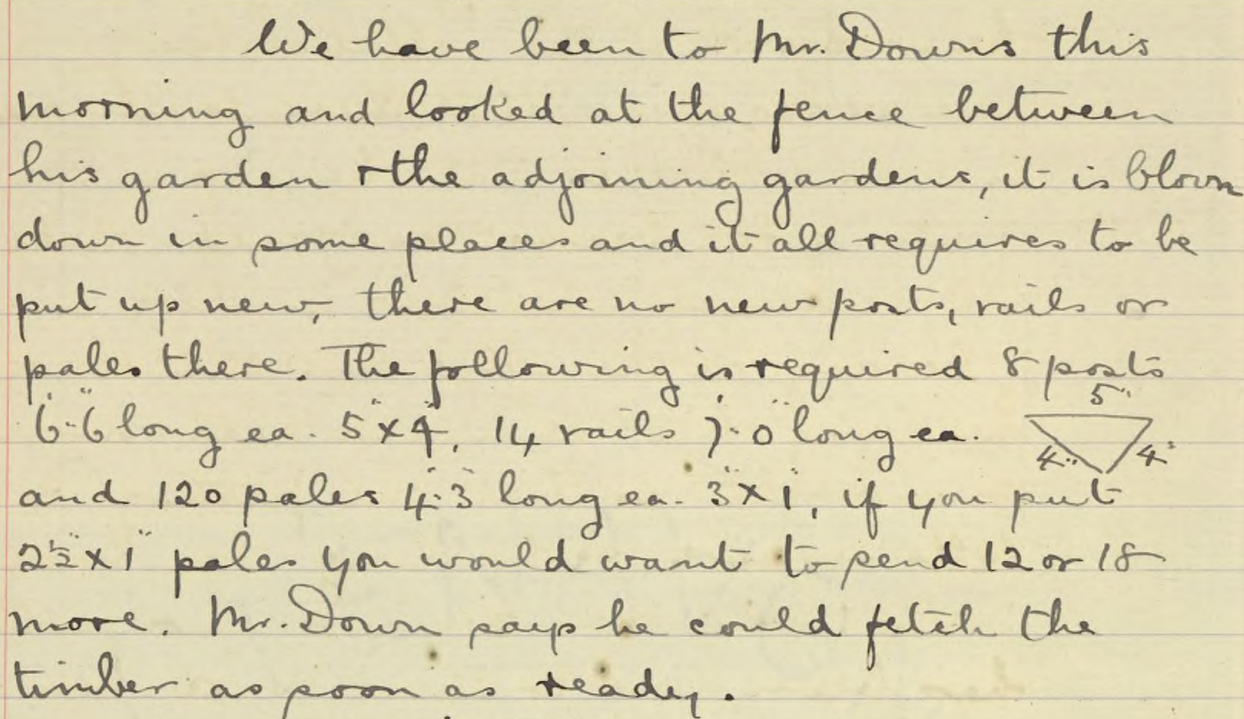 We have been to Mr. Downs this
morning and looked at the fence between
his garden + the adjoining gardens, it is blown
down in some places and it all requires to be
put up new, there are no new posts, rails or
pales there. The following is required 8 posts
6'-6" long ea. 5" x 4", 14 rails 7'-0" long ea. 5" 4" 4"
and 120 pales 4'-3" long ea. 3" x 1", if you put
2½" x 1" pales you would want to send 12 or 18
more. Mr. Down says he could fetch the
timber as soon as ready.